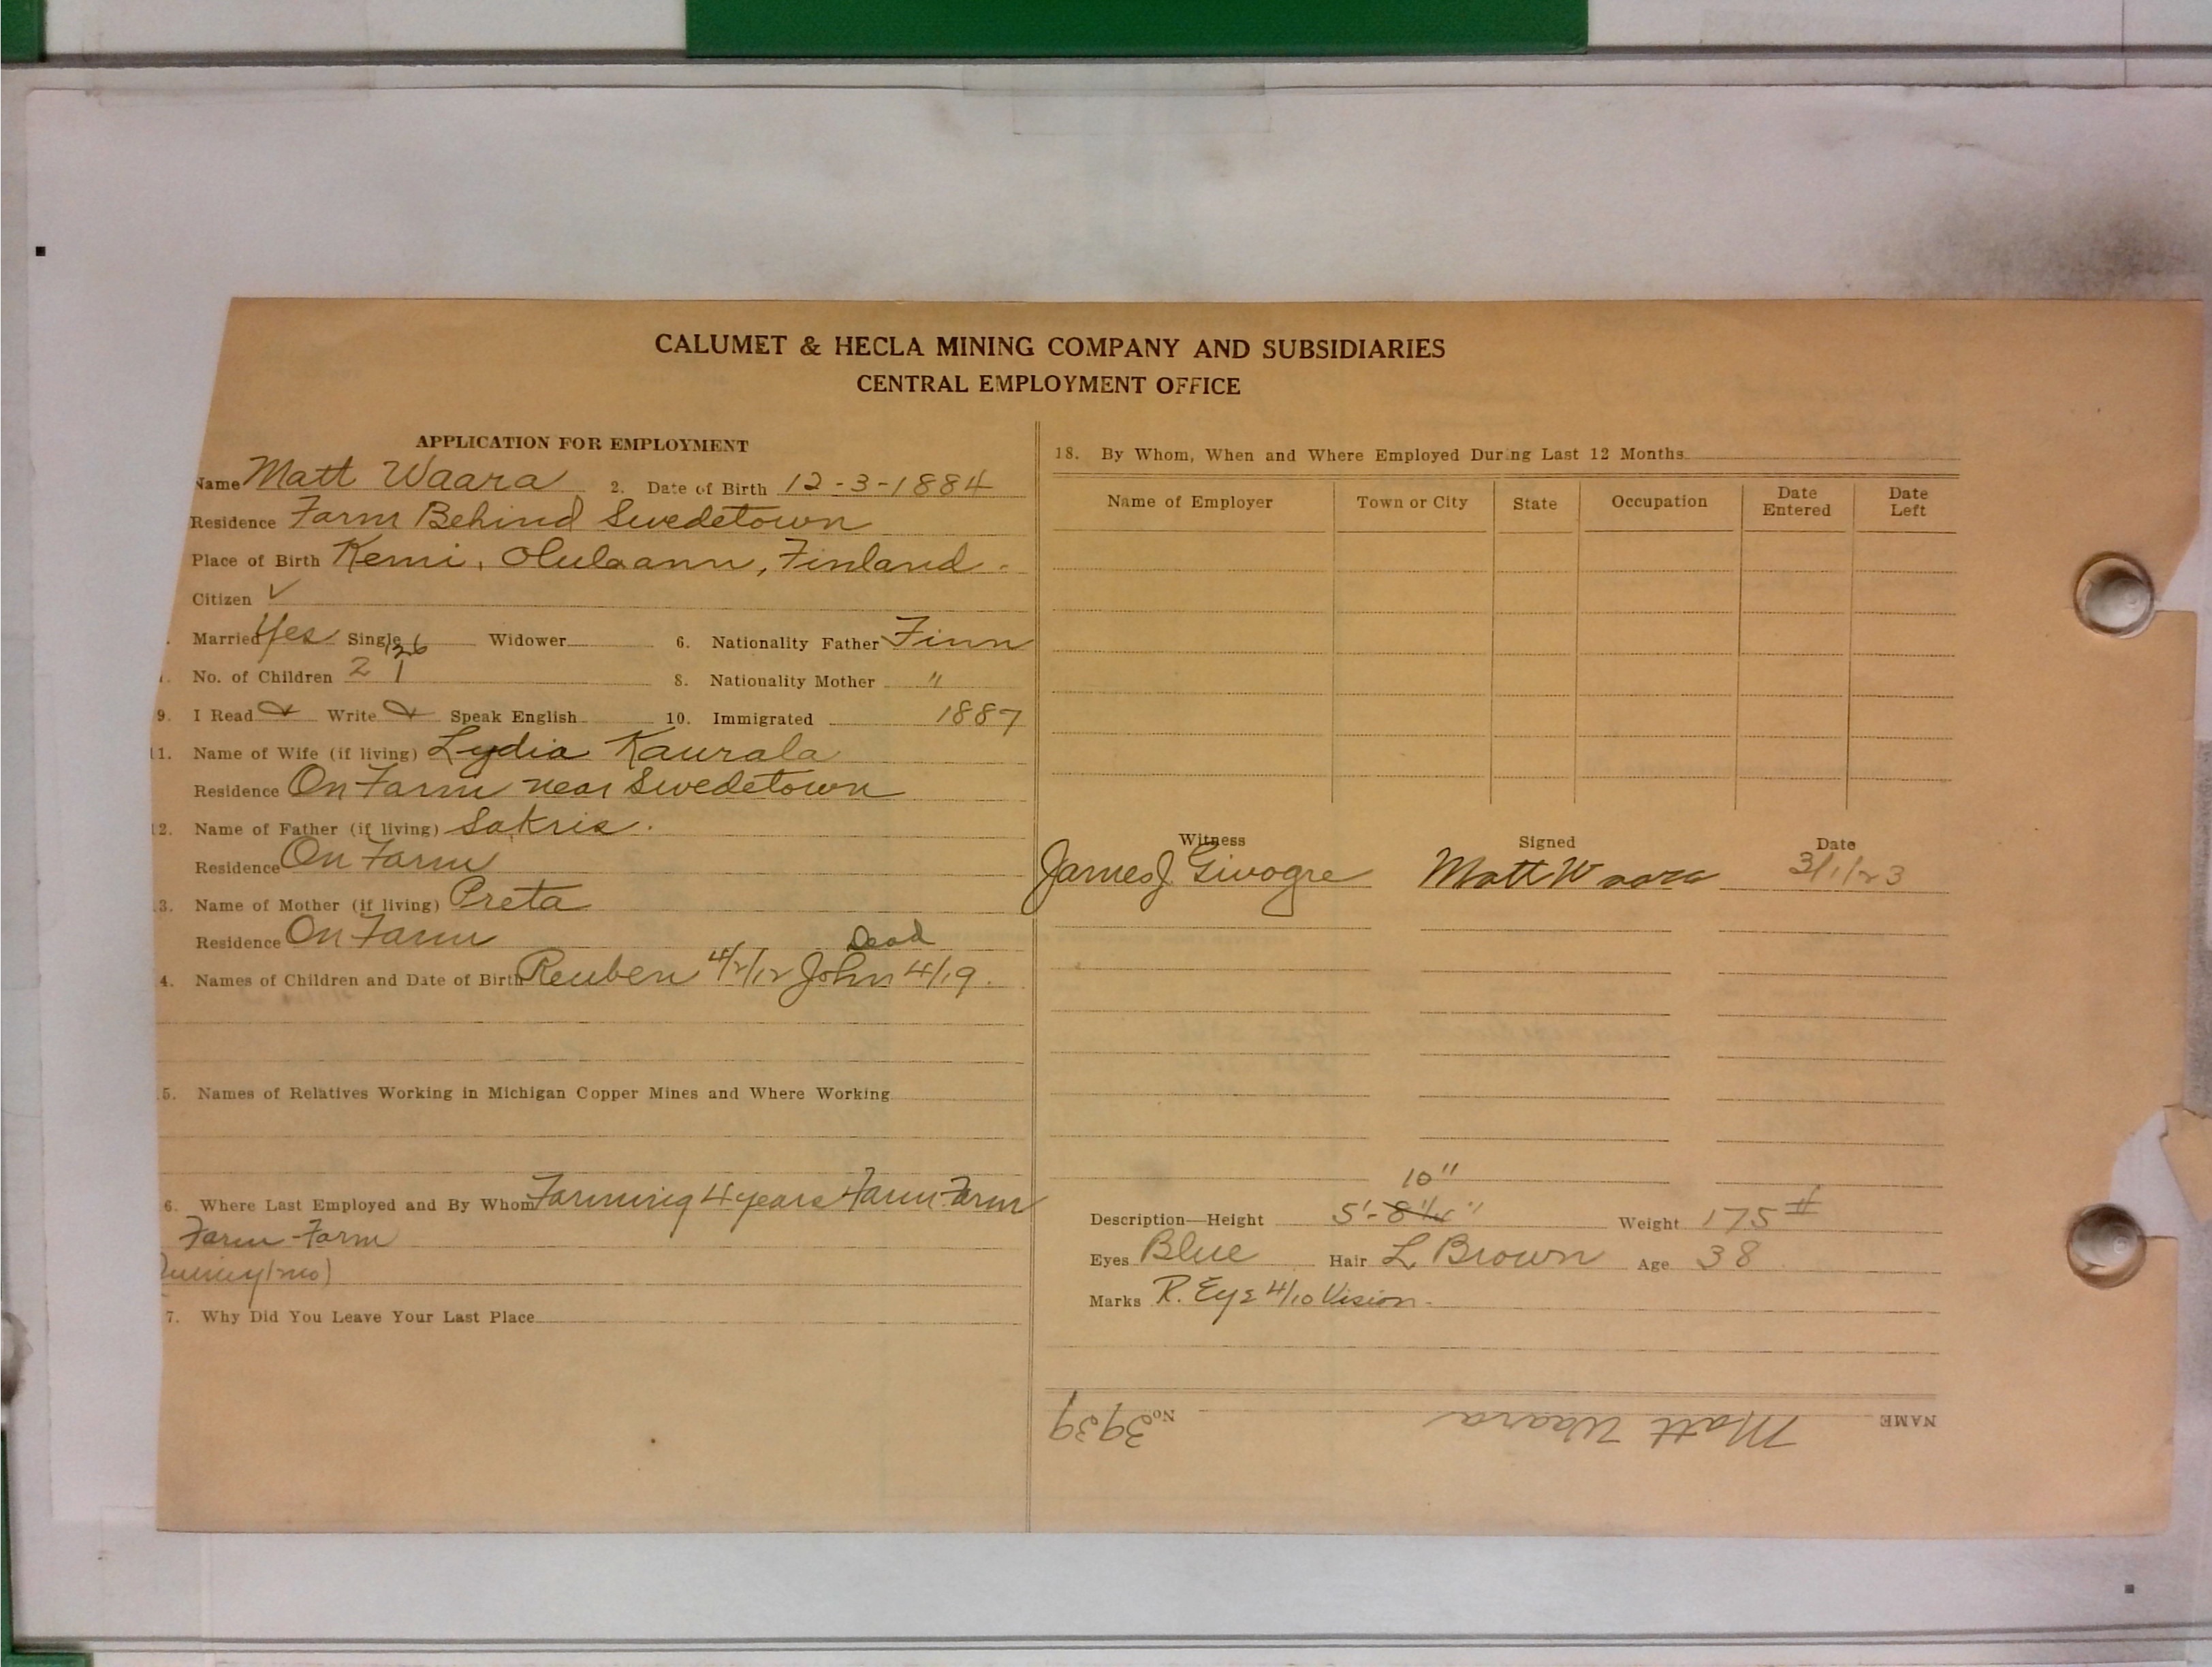 CALUMET & HECLA MINING COMPANY AND SUBSIDIARIES
CENTRAL EMPLOYMENT OFFICE
APPLICATION FOR EMPLOYMENT
Name Matt Waara 2. Date of Birth 12-3-1884
Residence Farm Behind Swedetown
Place of Birth Kemi, Olulaann, Finland.
Citizen ✓
Married Yes Single Widower 6. Nationality Father Finn
No. of Children 2 1 8. Nationality Mother "
9. I Read Write Speak English 10. Immigrated 1887
11. Name of Wife (if living) Lydia Kaurala
Residence On Farm near Swedetown
12. Name of Father (if living) Sakris.
Residence On Farm
3. Name of Mother (if living) Preta
Residence On Farm
Dead
4. Names of Children and Date of Birth Reuben 4/2/12 John 4/19.
5. Names of Relatives Working in Michigan Copper Mines and Where Working
6. Where Last Employed and By Whom Farming 4 years Farm-Farm
Farm-Farm
7. Why Did You Leave Your Last Place
18. By Whom, When and Where Employed During Last 12 Months
Name of Employer Town or City State Occupation Date Entered Date Left
Witness Signed Date
James J Givogre Matt Waara 3/1/23
10"
Description—Height 5'-8 1/4" Weight 175 #
Eyes Blue Hair L. Brown Age 38
Marks R. Eye 4/10 Vision.
NAME Matt Waara No. 3939